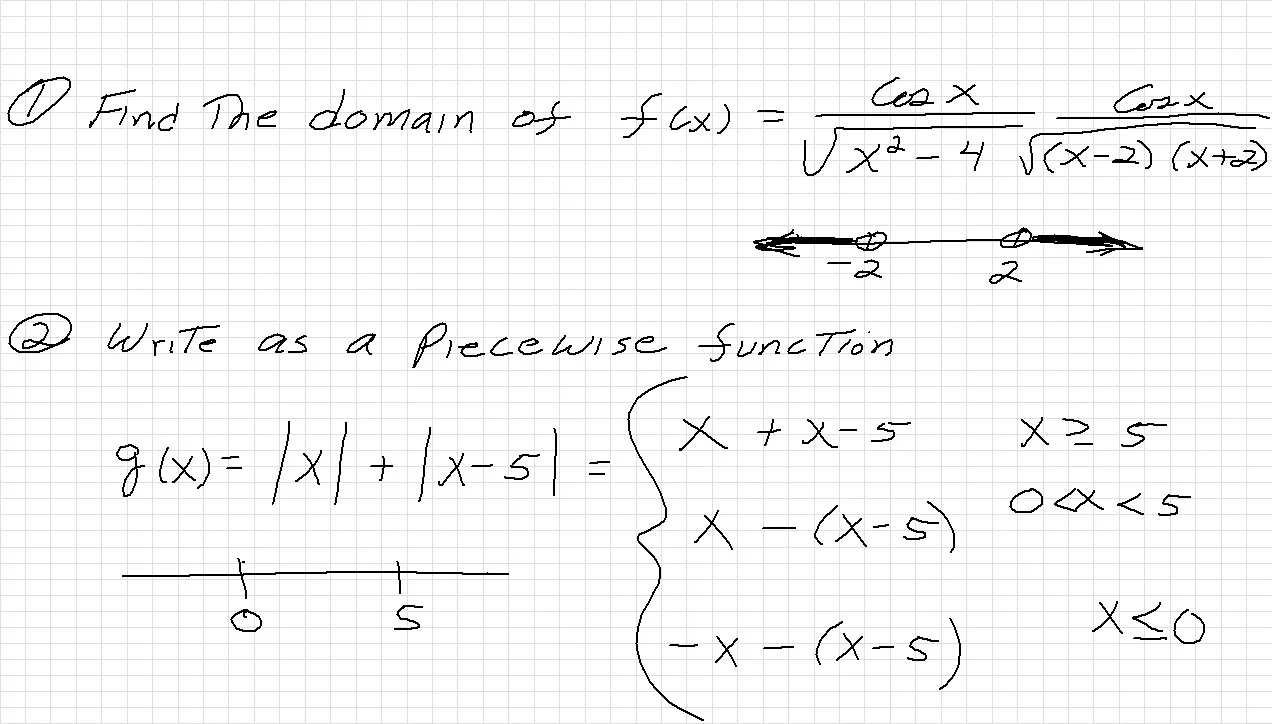 ① Find The domain of f(x) = cos x / √(x² - 4) cos x / √((x-2)(x+2))
-2 2
② Write as a Piecewise function
g(x) = |x| + |x-5| = { x + x-5 x ≥ 5
x - (x-5) 0<x<5
-x - (x-5) x ≤ 0
0 5